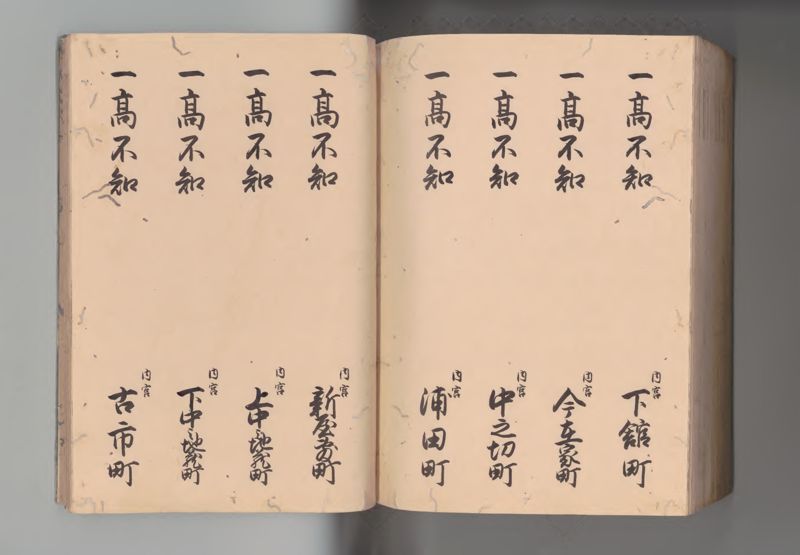 一高不知 内宮 下舘町
一高不知 内宮 今在家町
一高不知 内宮 中之切町
一高不知 内宮 浦田町
一高不知 内宮 新屋敷町
一高不知 内宮 上中之地蔵町
一高不知 内宮 下中之地蔵町
一高不知 内宮 古市町